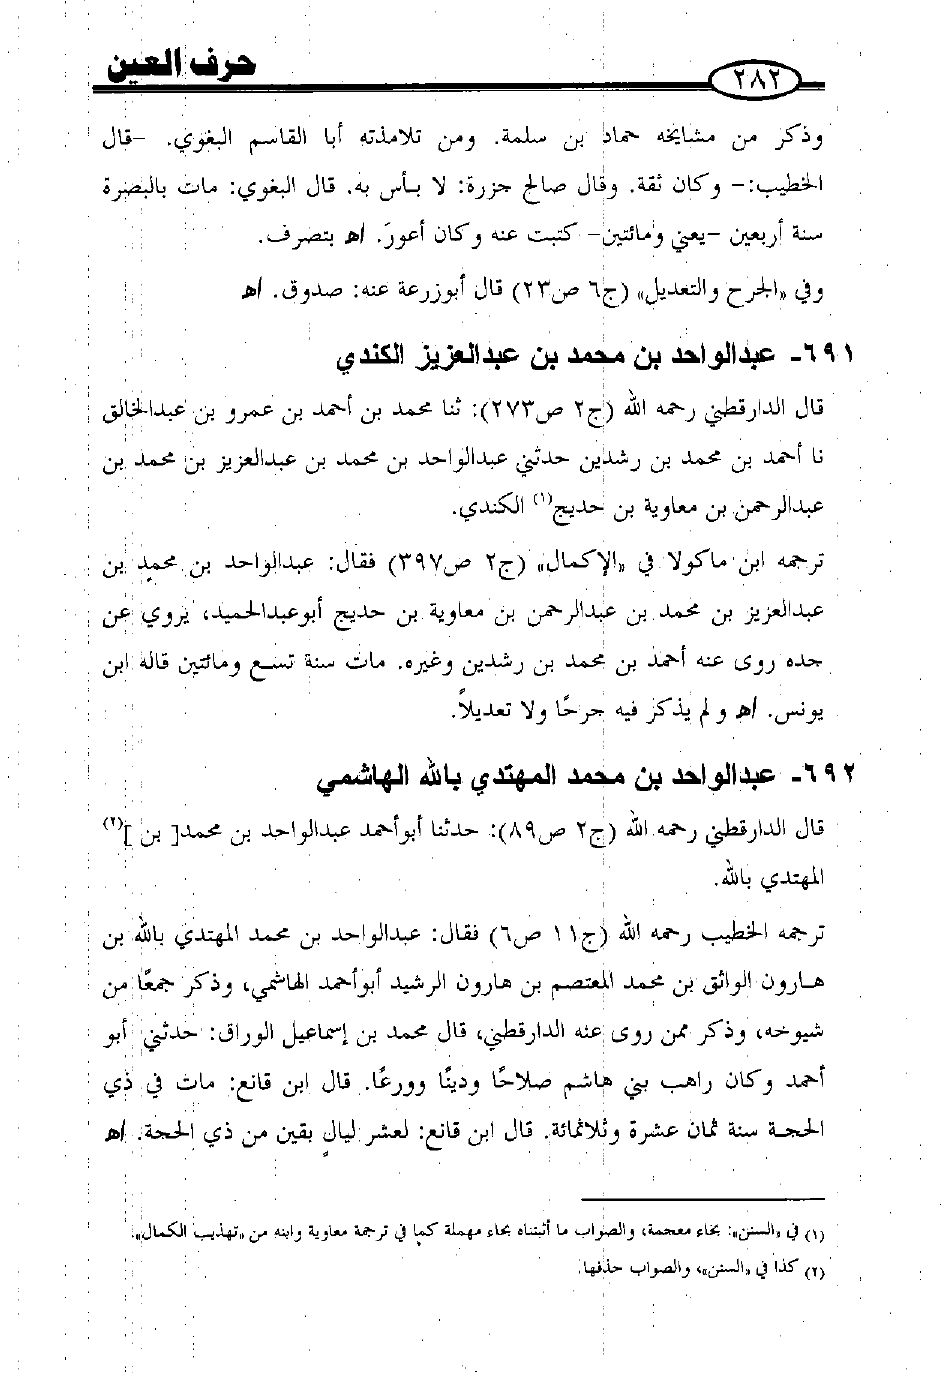 حرف العين
٢٨٢
وذكر من مشايخه حماد بن سلمة. ومن تلامذته أبا القاسم البغوي. -قال
الخطيب:- وكان ثقة. وقال صالح جزرة: لا بأس به. قال البغوي: مات بالبصرة
سنة أربعين -يعني ومائتين- كتبت عنه وكان أعورَ. اهـ بتصرف.
وفي «الجرح والتعديل» (ج٦ ص٢٣) قال أبوزرعة عنه: صدوق. اهـ
٦٩١- عبدالواحد بن محمد بن عبدالعزيز الكندي
قال الدارقطني رحمه الله (ج٢ ص٢٧٣): ثنا محمد بن أحمد بن عمرو بن عبدالخالق
نا أحمد بن محمد بن رشدين حدثني عبدالواحد بن محمد بن عبدالعزيز بن محمد بن
عبدالرحمن بن معاوية بن حديج(١) الكندي.
ترجمه ابن ماكولا في «الإكمال» (ج٢ ص٣٩٧) فقال: عبدالواحد بن محمد بن
عبدالعزيز بن محمد بن عبدالرحمن بن معاوية بن حديج أبوعبدالحميد، يروي عن
جده روى عنه أحمد بن محمد بن رشدين وغيره. مات سنة تسع ومائتين قاله ابن
يونس. اهـ و لم يذكر فيه جرحًا ولا تعديلاً.
٦٩٢- عبدالواحد بن محمد المهتدي بالله الهاشمي
قال الدارقطني رحمه الله (ج٢ ص٨٩): حدثنا أبوأحمد عبدالواحد بن محمد[ بن ](٢)
المهتدي بالله.
ترجمه الخطيب رحمه الله (ج١١ ص٦) فقال: عبدالواحد بن محمد المهتدي بالله بن
هارون الواثق بن محمد المعتصم بن هارون الرشيد أبوأحمد الهاشمي، وذكر جمعًا من
شيوخه، وذكر ممن روى عنه الدارقطني، قال محمد بن إسماعيل الوراق: حدثني أبو
أحمد وكان راهب بني هاشم صلاحًا ودينًا وورعًا. قال ابن قانع: مات في ذي
الحجة سنة ثمان عشرة وثلاثمائة. قال ابن قانع: لعشر ليالٍ بقين من ذي الحجة. اهـ
(١) في «السنن»: بخاء معجمة، والصواب ما أثبتناه بحاء مهملة كما في ترجمة معاوية وابنه من «تهذيب الكمال».
(٢) كذا في «السنن»، والصواب حذفها.